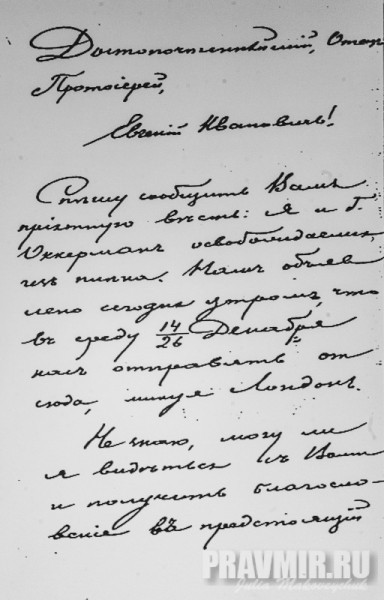 Достопочтеннѣйшій, Отецъ
Протоіерей,
Евгеній Ивановичъ!
Спѣшу сообщить Вамъ
пріятную вѣсть: я и б.
Уккерманъ освобождаемся
изъ плѣна. Намъ объяв
лено сегодня утромъ, что
въ среду 14/26 Декабря
насъ отправятъ от
сюда, минуя Лондонъ.
Не знаю, могу ли
я видѣться съ Вами
и получить благосло-
веніе въ предстоящій
PRAVMIR.RU
Julia Makoveychuk